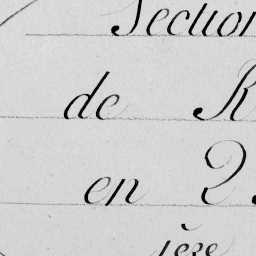 Section
de R
en 2
ière